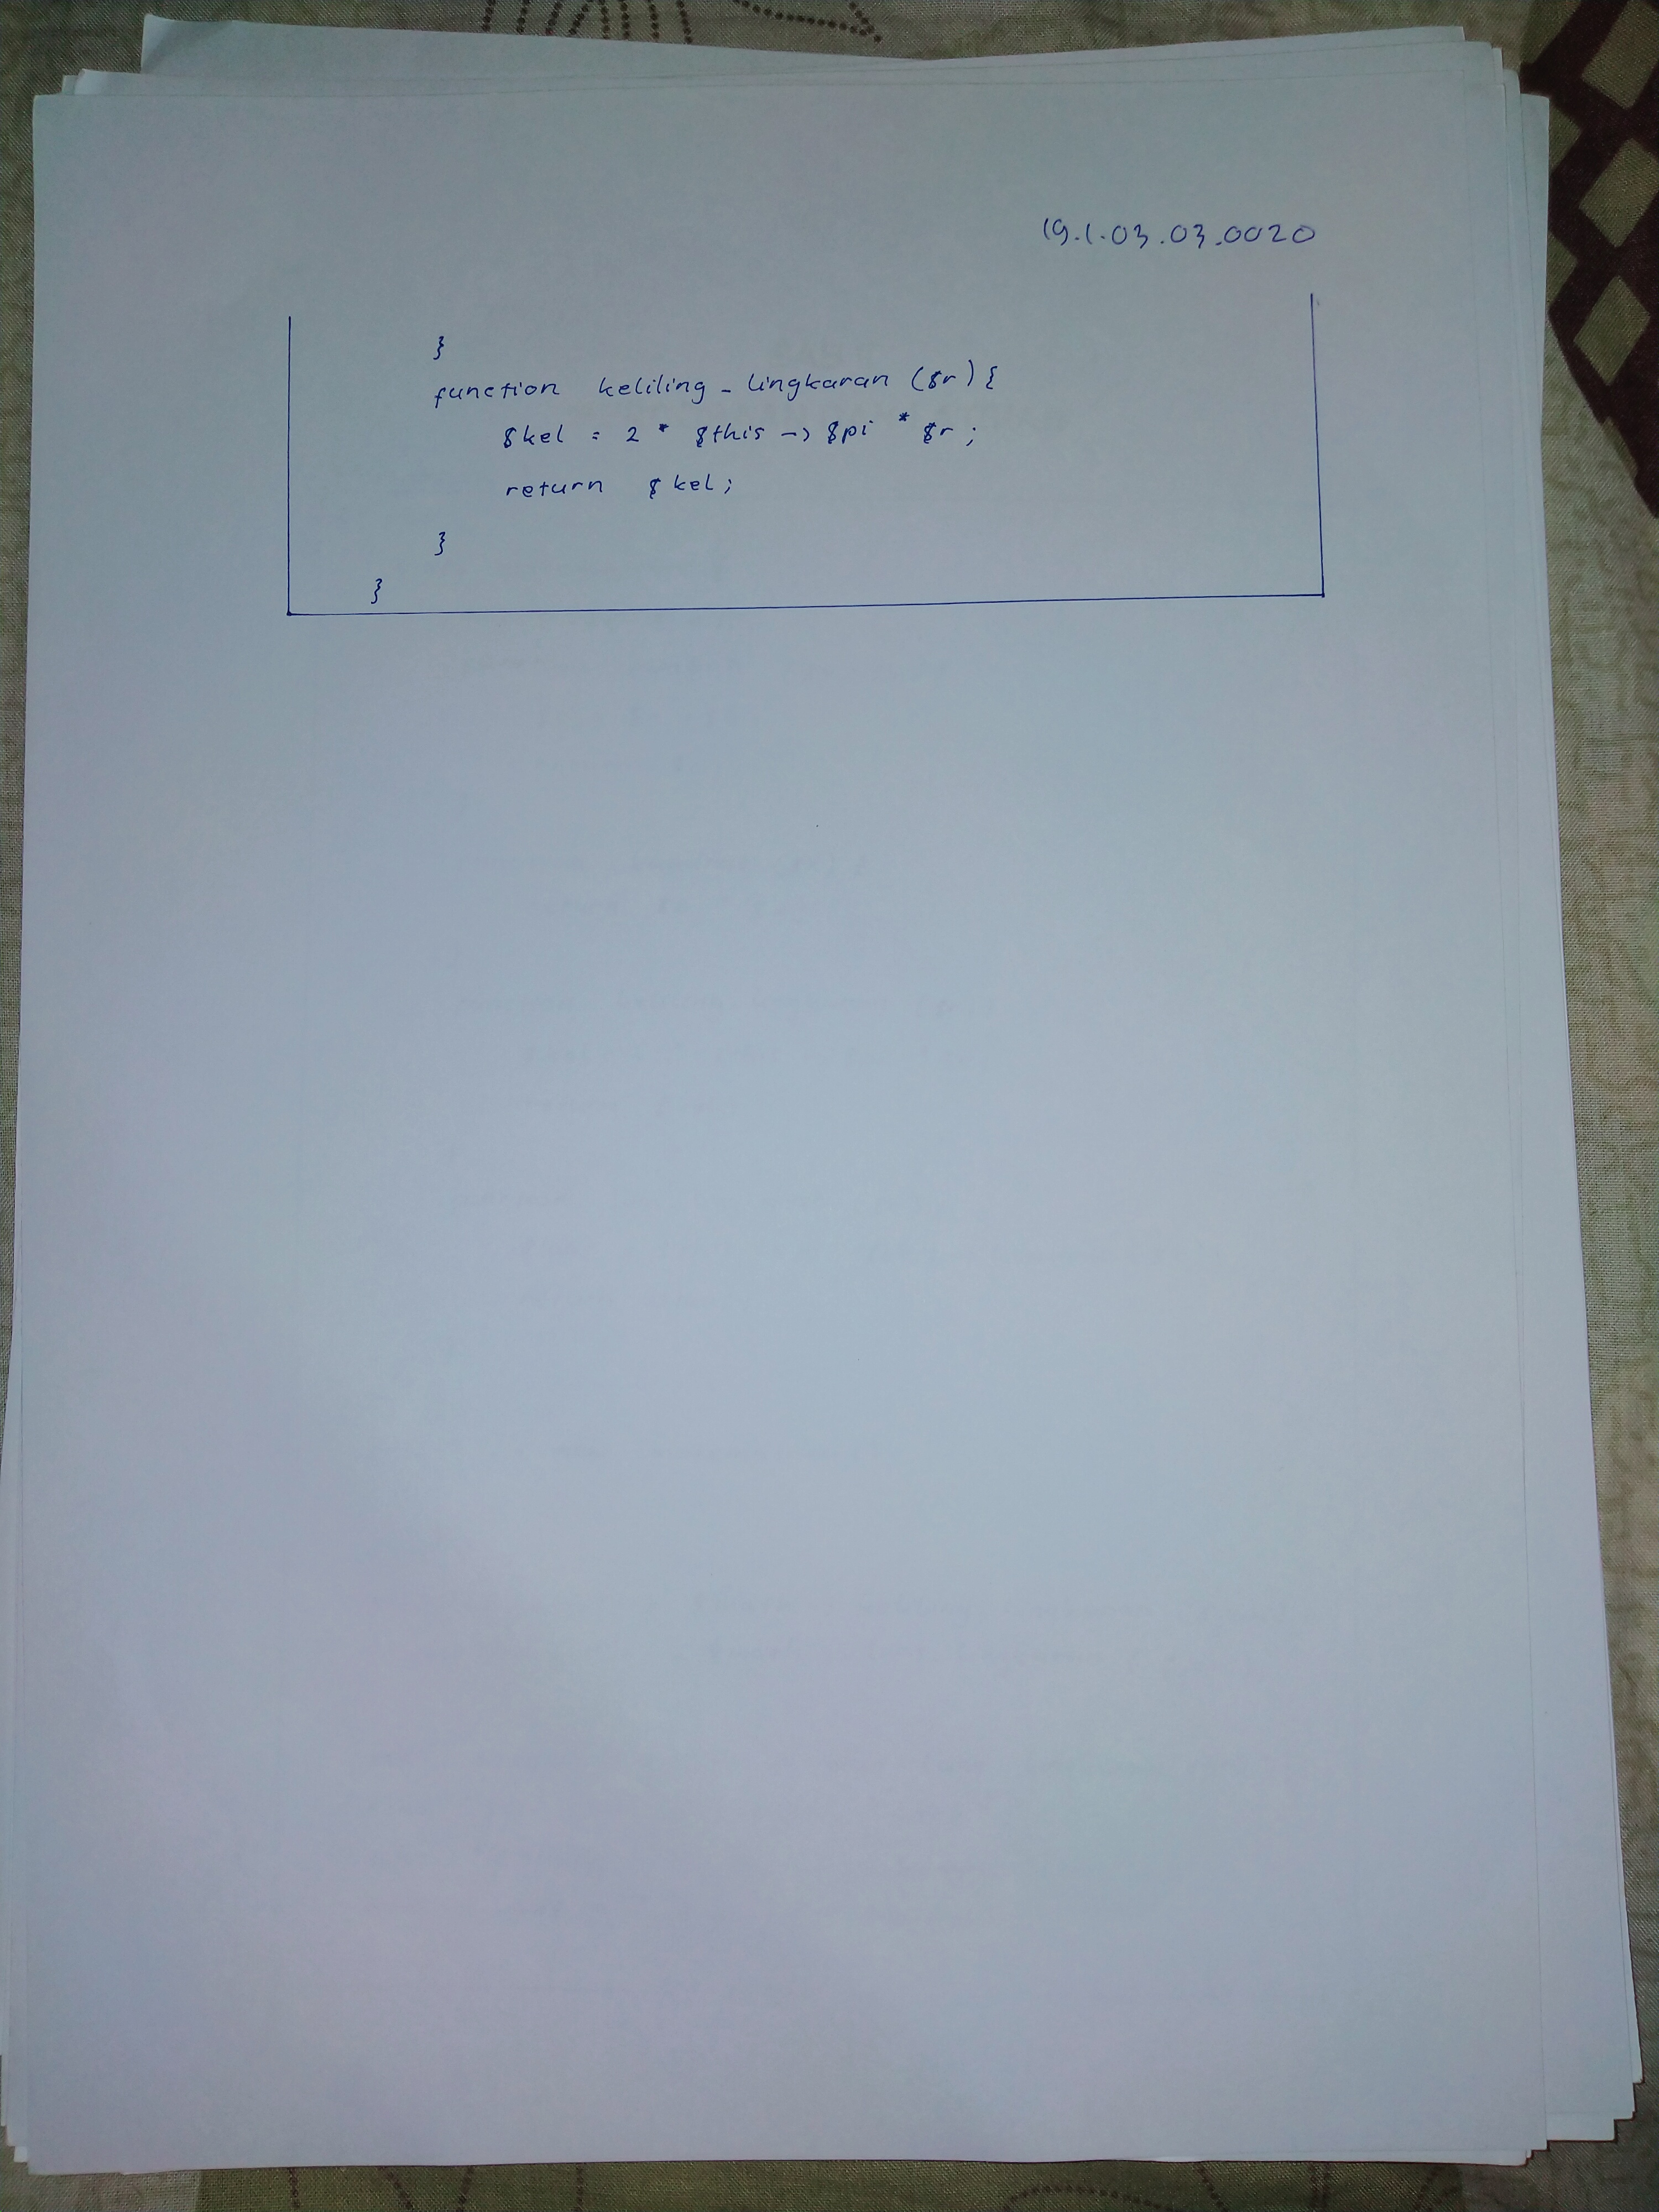 19.1.03.03.0020
}
function keliling_lingkaran ($r) {
$kel = 2 * $this -> $pi * $r ;
return $kel ;
}
}